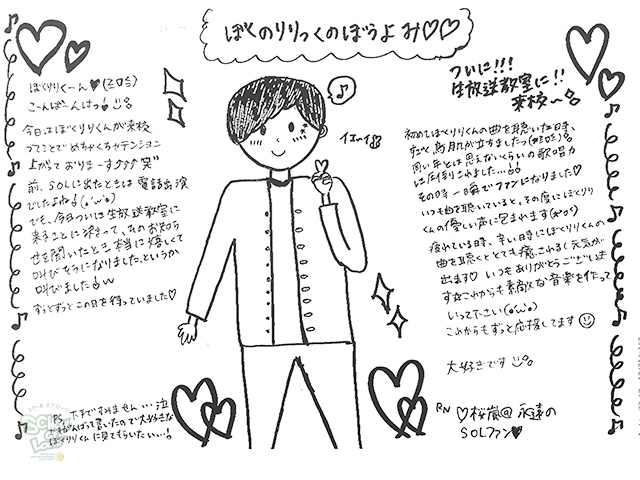 ぼくのりりっくのぼうよみ♡♡
ぼくりりくーん♥(ミロミ)
こーんばーんはっ
今日はぼくりりくんが来校
ってことでめちゃくちゃテンション
上がっておりまーす⤴⤴⤴笑"
前、SOLに出たときは電話出演
でしたよね!(o'ω'o)
でも、今日ついに生放送教室に
来ることに決まって、そのお知ら
せを聞いたとき本当に嬉しくて
叫びそうになりました、というか
叫びましたw
ずっとずっとこの日を待っていました♡
イエーイ
ついに!!!
生放送教室に!!
来校〜
初めてぼくりりくんの曲を聴いた時、
すごく鳥肌が立ちましたっ
同い年とは思えないくらいの歌唱力
に圧倒されました...
その時一瞬でファンになりました♡
いつも曲を聴いていると、その度にぼくりり
くんの優しい声に包まれます
疲れている時、辛い時にぼくりりくんの
曲を聴くととても癒されるし元気が
出ます♡いつもありがとうございま
すこれからも素敵な音楽を作って
いって下さい(o'ω'o)
これからもずっと応援してます
大好きです
PS 下手ですみません...泣
がんばって書いたので大好きな
ぼくりりくんに見てもらいたい...!
RN ♡桜嵐@永遠の
SOLファン♥